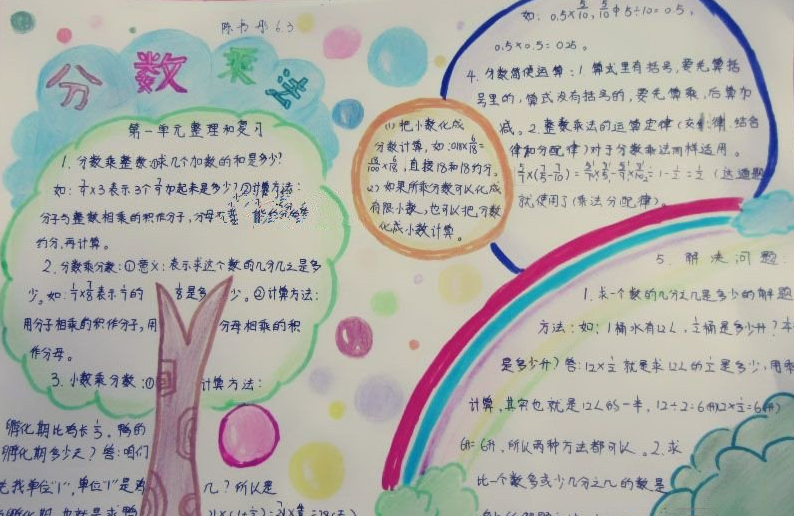 陈书彤 6.3
分数乘法
第一单元整理和复习
1. 分数乘整数:求几个加数的和是多少?
×3表示3个 加起来是多少?②计算方法:
分子与整数相乘的积作分子,分母不变
约分,再计算。
2. 分数乘分数:①意义:表示求这个数的几分几之是多
少。如: 表示 的 是多少。②计算方法:
用分子相乘的积作分子,用 分母相乘的积
作分母。
3. 小数乘分数:① 计算方法:
孵化期比鸡长1/3。鸭的
孵化期多少天?答:咱们
先找单位"1",单位"1"是鸡
几?所以是
(1)把小数化成
分数计算,如:
直接18和18约分。
(2)如果所乘分数可以化成
有限小数,也可以把分数
化成小数计算。
如: 0.5×5/10, 5/10=5÷10=0.5,
0.5×0.5=0.25。
4. 分数简便运算:1 算式里有括号,要先算括
号里的,算式没有括号的,要先算乘,后算加
减。2. 整数乘法的运算定律(交换律.结合
律和分配律)对于分数乘法同样适用。
=1-1/2=1/2(这道题
就使用了(乘法分配律)。
5. 解决问题:
1. 求一个数的几分之几是多少的解题
方法:如:1桶水有12L,1/2桶是多少升?
是多少升)答:12×1/2 就是求12L的1/2是多少,用乘
计算,其实也就是12L的一半,12÷2=6
6升=6升,所以两种方法都可以。2. 求
比一个数多或少几分之几的数是